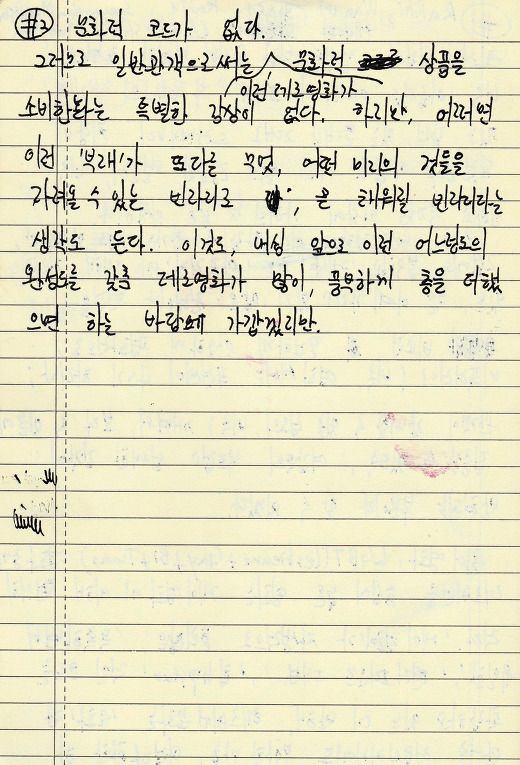 #3 문화적 코드가 없다.
그러므로 일반관객으로써는 문화적 상품을
이런 테러영화가
소비한다는 특별한 감상이 없다. 하지만, 어쩌면
이런 '부재'가 또다른 무엇, 어떤 미래의 것들을
가려올 수 있는 빈자리로, 곧 채워질 빈자리라는
생각도 든다. 이것도, 내심 앞으로 이런 어느정도의
완성도를 갖춘 테러영화가 많이, 풍부하게 층을 더했
으면 하는 바람에 가깝겠지만.